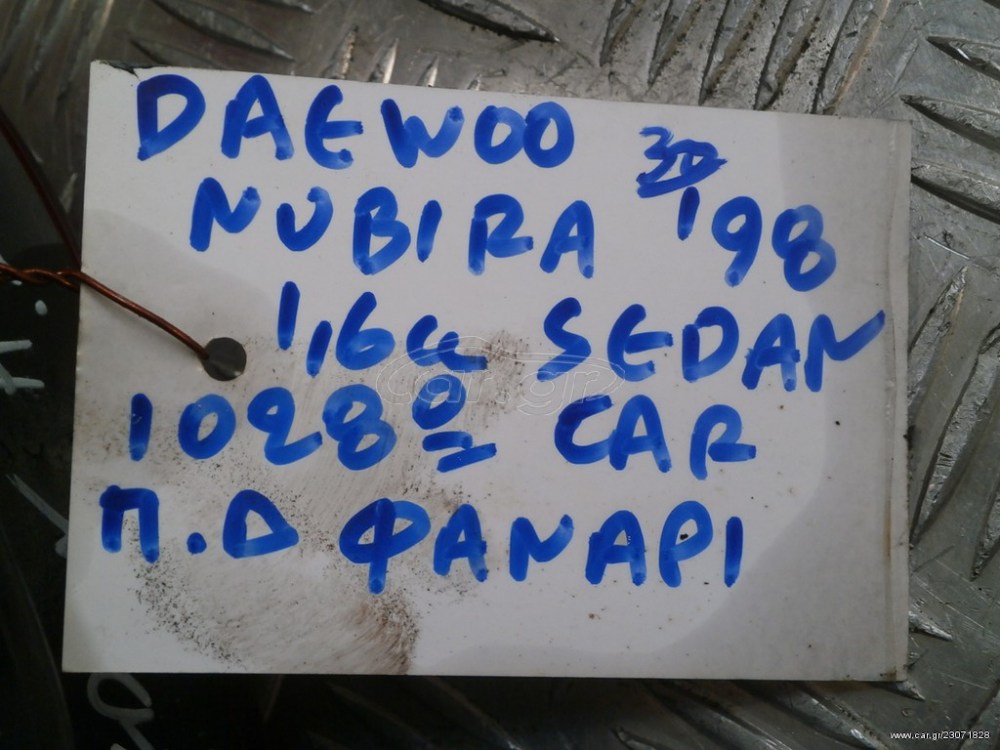 DAEWOO
NUBIRA '98
1,6cc SEDAN
1028º CAR
Π.Δ ΦΑΝΑΡΙ
car.gr
www.car.gr/23071828